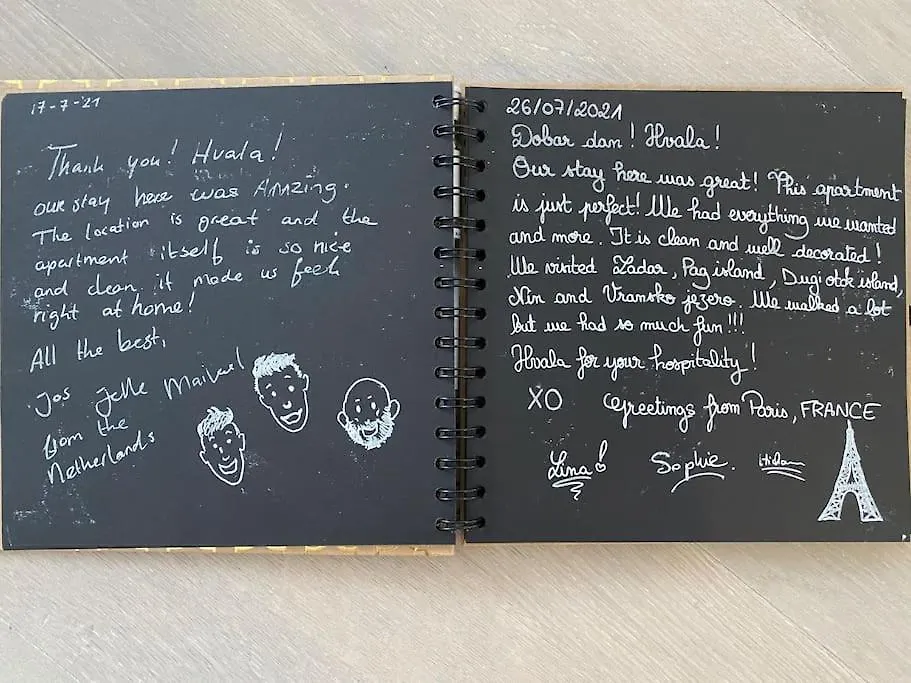 17-7-'21
Thank you! Hvala!
our stay here was Amazing.
The location is great and the
apartment itself is so nice
and clean. it made us feel
right at home!
All the best,
Jos Jelle Maikel
from the
Netherlands
26/07/2021
Dobar dan! Hvala!
Our stay here was great! This apartment
is just perfect! We had everything we wanted
and more. It is clean and well decorated!
We visited Zadar, Pag island, Dugi otok island,
Nin and Vransko jezero. We walked a lot
but we had so much fun!!!
Hvala for your hospitality!
XO Greetings from Paris, FRANCE
Lina! Sophie.